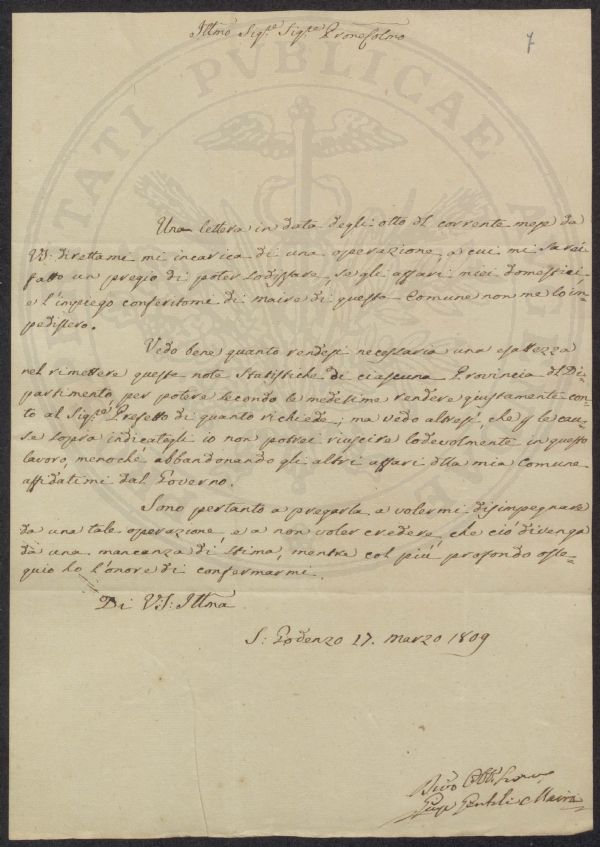 Illmo Sigre Sigre Prone Colmo
7
Una lettera in data degli otto del corrente mese da
VS: direttami mi incarica di una operazione, a cui mi sarei
fatto un pregio di poter sodisfare, se gli affari miei domestici
e l'impiego conferitomi di maire di questa Comune non me lo im=
pedissero.
Vedo bene quanto rendesi necessaria una esattezza
nel rimettere queste note statistiche di ciascuna Provincia del Di=
partimento, per potere secondo le medesime rendere giustamente con=
to al Sigre Prefetto di quanto richiede; ma vedo altresì, che p le cau=
se sopra indicategli io non potrei riuscire lodevolmente in questo
lavoro, menochè abbandonando gli altri affari della mia Comune
affidatimi dal Governo.
Sono pertanto a pregarla a volermi disimpegnare
da una tale operazione, e a non voler credere, che ciò divenga
da una mancanza di stima, mentre col più profondo osse=
quio ho l'onore di confermarmi.
Di VS: Illma
S: Godenzo 17. Marzo 1809
Gentili Maire
TATI PVBLICAE